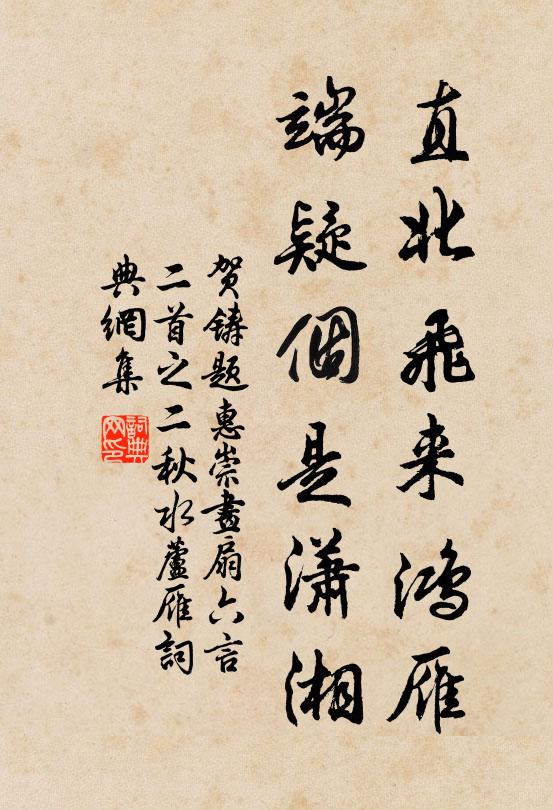 直北飛来鴻雁
端疑個是瀟湘
贺鑄題惠崇畫扇六言
二首之二秋水蘆雁詞
典網集
詞典
网印